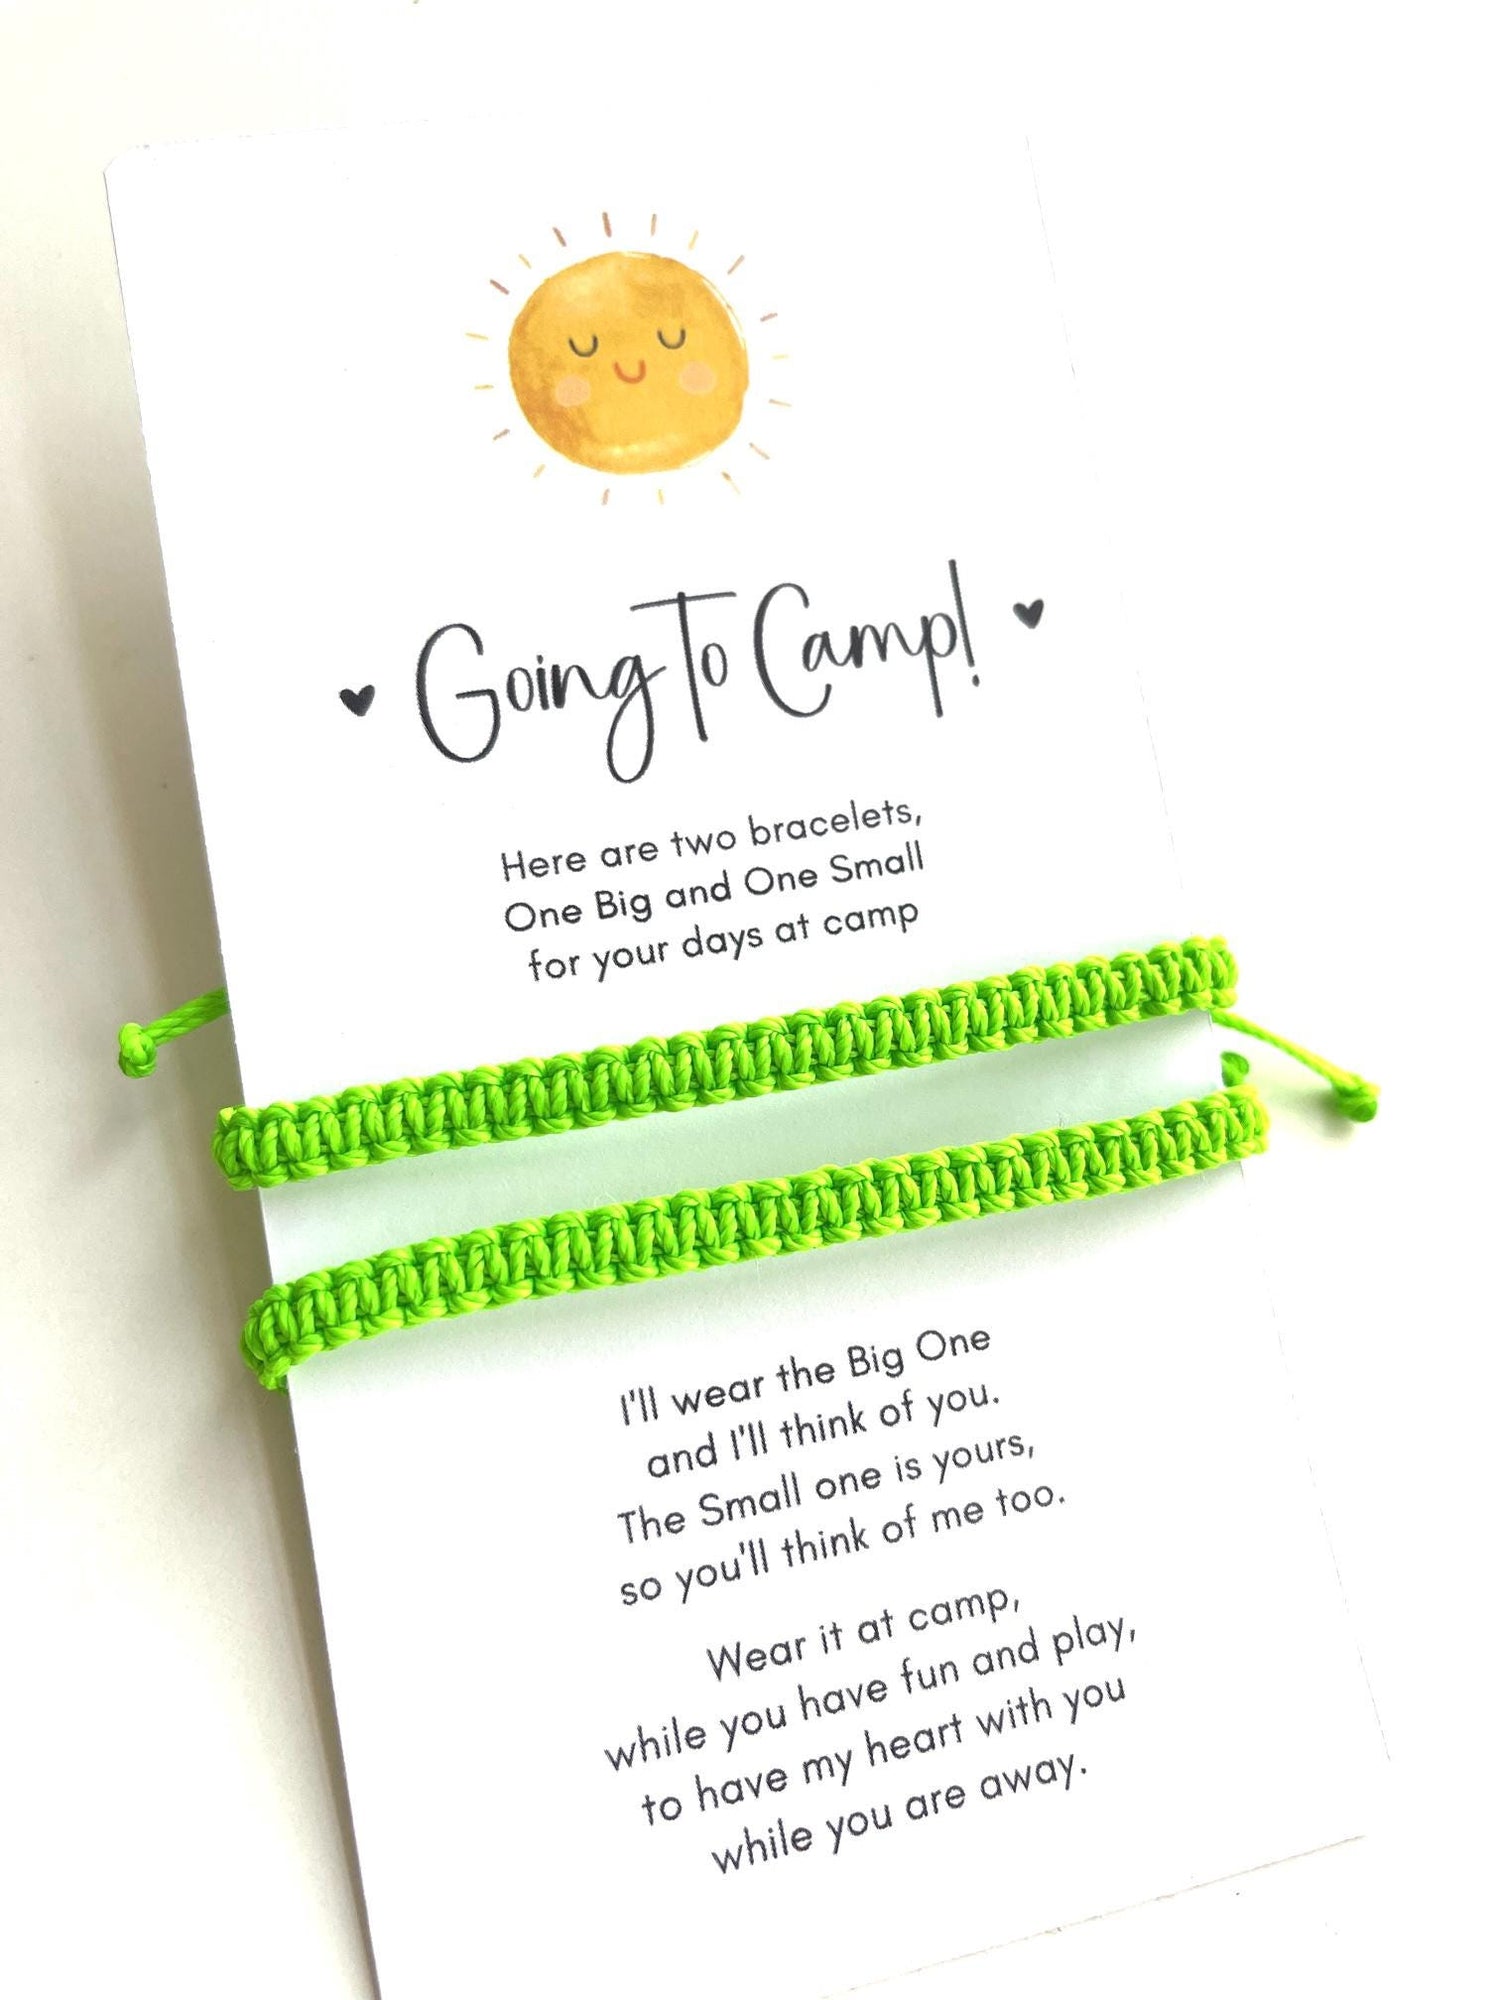 Going To Camp!
Here are two bracelets,
One Big and One Small
for your days at camp
I'll wear the Big One
and I'll think of you.
The Small one is yours,
so you'll think of me too.
Wear it at camp,
while you have fun and play,
to have my heart with you
while you are away.